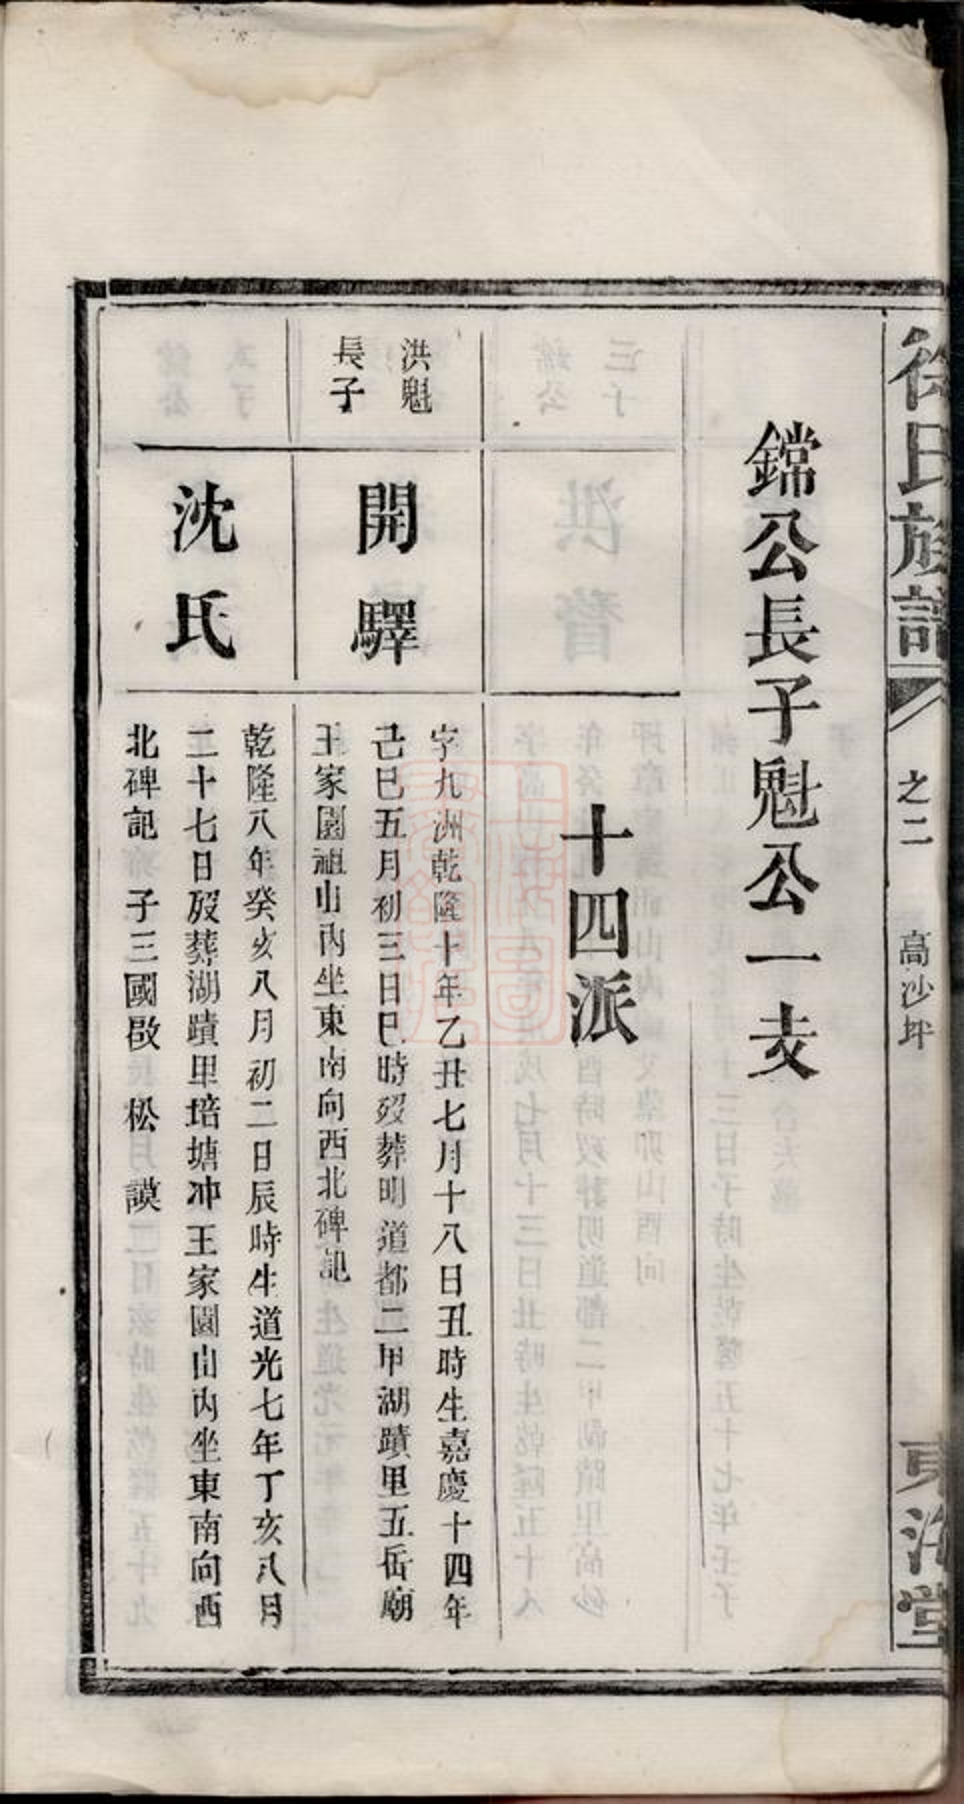 徐氏族譜
之二
高沙坪
東海堂
鐺公長子魁公一支
十四派
洪魁
長子
開驛
字九洲乾隆十年乙丑七月十八日丑時生嘉慶十四年
己巳五月初三日巳時歿葬明道都二甲湖蹟里五岳廟
王家園祖山內坐東南向西北碑記
沈氏
乾隆八年癸亥八月初二日辰時生道光七年丁亥八月
二十七日歿葬湖蹟里培塘冲王家園山內坐東南向西
北碑記 子三國啟 松 謨